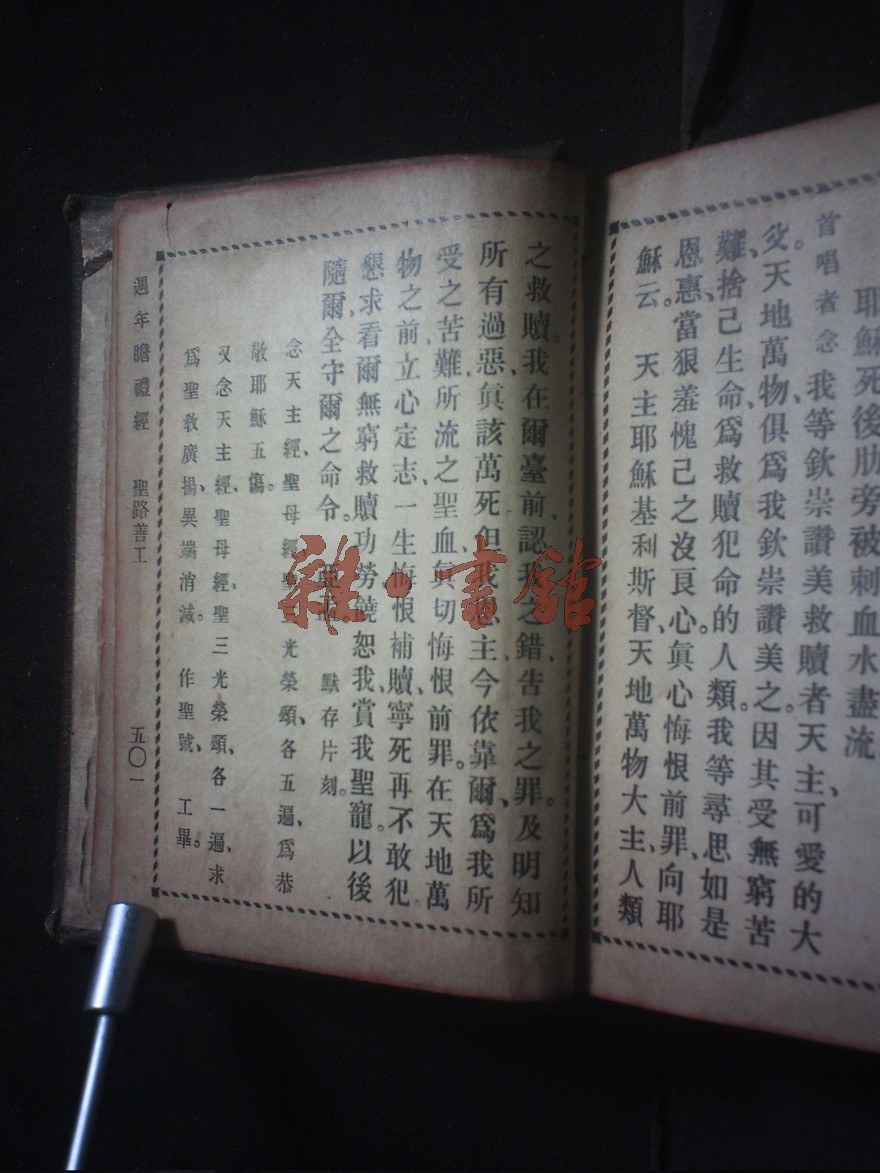 耶穌死後肋旁被刺血水盡流
首唱者念我等欽崇讚美救贖者天主、可愛的大
父。天地萬物、俱爲我欽崇讚美之。因其受無窮苦
難、捨己生命、爲救贖犯命的人類。我等尋思如是
恩惠、當狠羞愧己之沒良心。眞心悔恨前罪、向耶
穌云。 天主耶穌基利斯督、天地萬物大主、人類
之救贖。我在爾臺前、認我之錯、吿我之罪。及明知
所有過惡、眞該萬死、但我 主、今依靠爾、爲我所
受之苦難、所流之聖血、眞切悔恨前罪。在天地萬
物之前、立心定志、一生悔恨補贖、寧死再不敢犯。
懇求看爾無窮救贖功勞、饒恕我、賞我聖寵。以後
隨爾、全守爾之命令。 默存片刻。
念天主經、聖母經、聖三光榮頌、各五遍、爲恭
敬耶穌五傷。
又念天主經、聖母經、聖三光榮頌、各一遍、求
爲聖教廣揚、異端消滅。 作聖號、工畢。
週年瞻禮經 聖路善工 五〇一
雜·書館